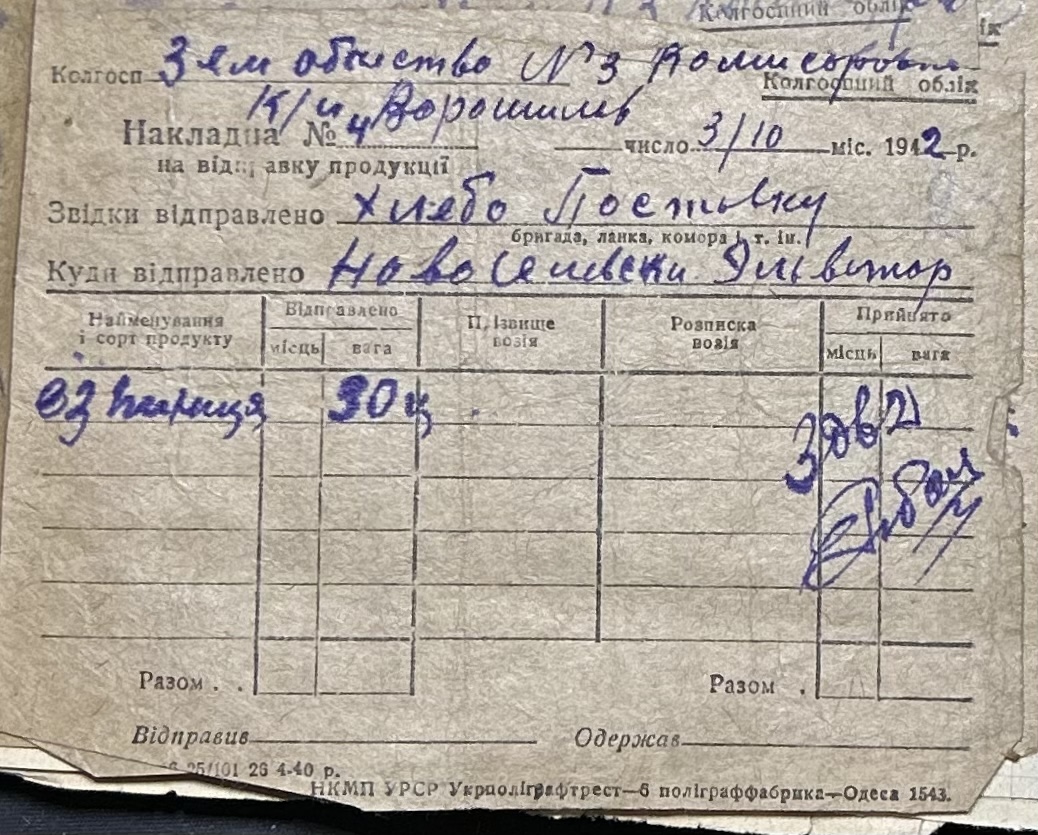 Колгоспний облік
Колгосп Зем общество №3
Колгоспний облік
К/и Ворошилов
Накладна № 4 число 3/10 міс. 1942 р.
на відправку продукції
Звідки відправлено Хлебо Поставку
бригада, ланка, комора і т. ін.
Куди відправлено Ново Селевски Элватор
Найменування і сорт продукту Відправлено Прізвище возія Розписка возія Прийнято
місць вага місць вага
оз пшениця 30 ц.
Разом . . Разом .
Відправив Одержав
25/101 26 4-40 р.
НКМП УРСР Укрполіграфтрест—6 поліграффабрика—Одеса 1543.